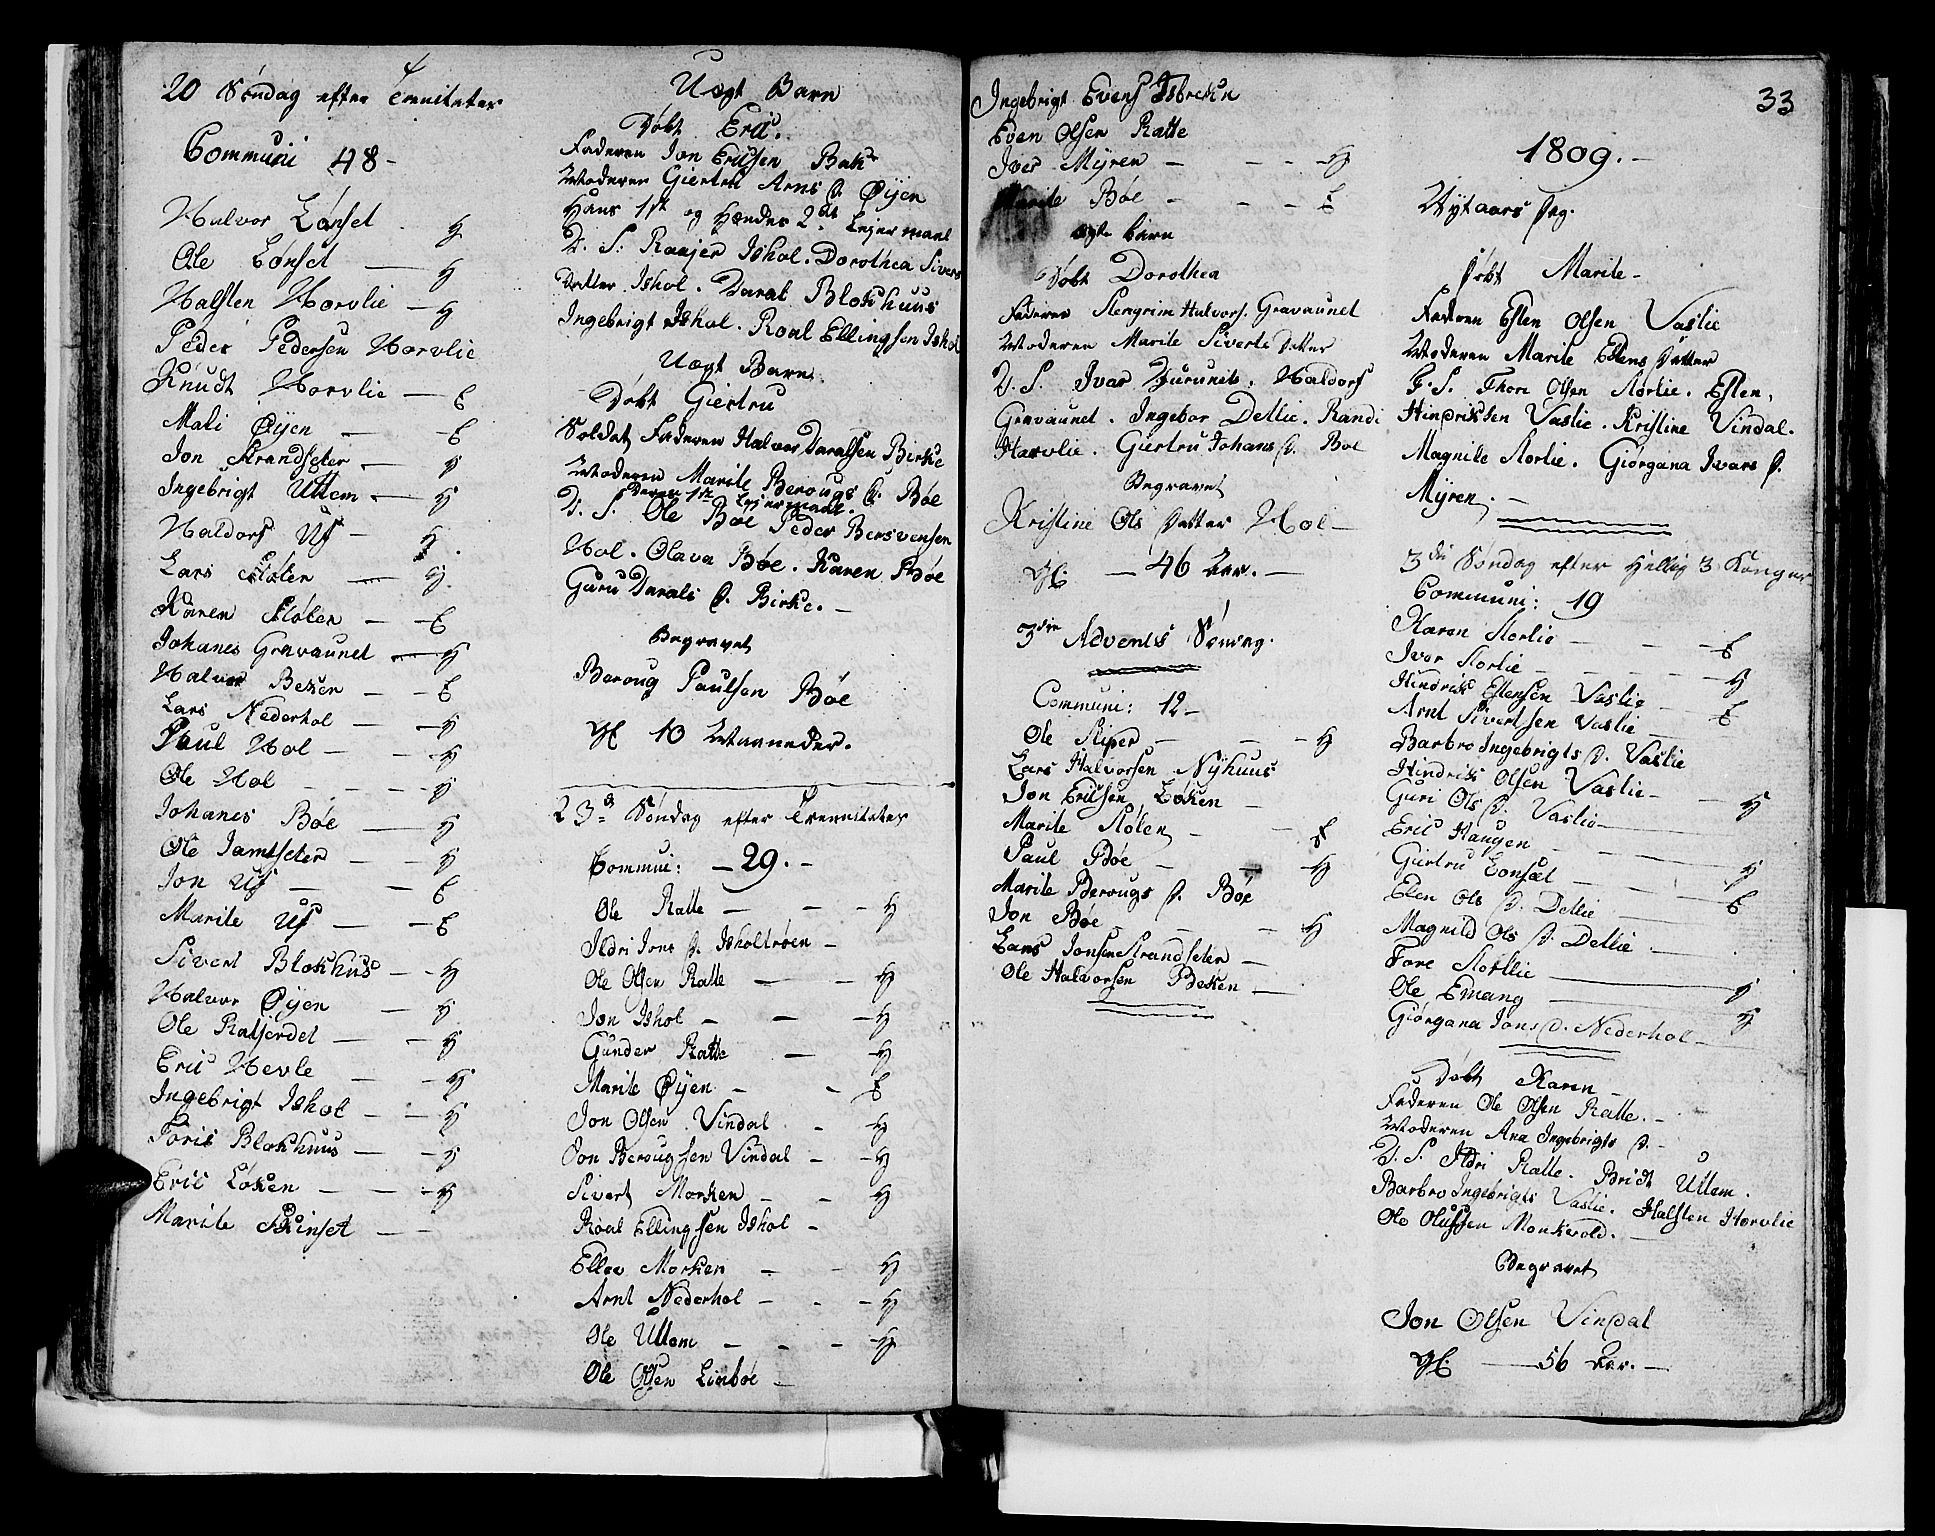 20 Søndag efter Treniteter
Communi 48 -
Halvor Lønset . H
Ole Lønset — H
Halsten Horvlie — H
Peder Pedersen Horvlie
Knudt Horvlie — E
Mali Øyen — E
Jon Strandseter — H
Ingebrigt Uttem — H
Haldors Us — H.
Lars Støten — H.
Karen Støten — E
Johanes Gravaunet — H
Halvor Beken — E
Lars Nederhol — H
Paul Hol — H
Ole Hol - - - H
Johanes Bøe — H
Ole Jamtseter — H
Jon Us — — E
Marite Us — E
Sivert Blokhus — H
Halvor Øyen — H
Ole Ratjerdet — H
Eric Hevle — H
Ingebrigt Ishol — H
Toris Blokhuus — H
Eric Løken — — H
Marite Skinset — —
Uægt Barn
Døbt Eric.
Faderen Jon Ericsen Bak
Moderen Giertru Arns D. Øyen
Hans 1st og Hændes 2de Lejermaal
D. S. Raajer Ishol. Dorothea Sivers
Datter Ishol. Daral Blokhuus
Ingebrigt Ishol. Roal Ellingsen Ishol
Uægt Barn.
Døbt Giertru
Soldat Faderen Halvor Daralsen Birke
Moderen Marite Berougs D. Bøe
Deres 1st Lejermaal.
D. S. Ole Bøe Peder Bersvensen
Hol. Olava Bøe. Karen Bøe
Guru Darals D. Birke. —
Begravet
Beroug Paulsen Bøe
Gl 10 Maaneder.
23d Søndag efter Trenniteter
Commui: — 29. —
Ole Ratte — — H
Ildri Jons D. Isholtrøen —
Ole Olsen Ratte — — H
Jon Ishol — — H
Gunder Ratte — H
Marite Øyen - - E
Jon Olsen Vindal - H
Jon Berougsen Vindal — H
Sivert Morken — — H
Roal Ellingsen Ishol -
Ellev Morken — - H
Arnt Nederhol — - H
Ole Uttem — — - H
Ole Olsen Linbøe —
Ingebrigt Evens Isbrekn
Even Olsen Ratte
Iver Myren — - - H
Marite Bøe - - - E
ægte barn
Døbt Dorothea
Faderen Stengrim Halvors. Gravaunet
Moderen Marite Siverts Datter
D. S. Ivar Durunets. Haldors
Gravaunet. Ingebor Detlie. Randi
Horvlie. Giertru Johans D. Bol
Begravet
Kristine Ols Datter Hol —
Gl. — 46 Aar. —
3die Advents Søndag.
Communi: 12 —
Ole Skiper — - - H
Lars Halvorsen Nyhuus
Jon Ericsen Løken —
Marite Støten — - E
Paul Bøe — - H
Marite Berougs D. Bøe
Jon Bøe - - H
Lars Jonsen Strandseter —
Ole Halvorsen Beken —
33
1809. —
Nytaars Dag.
Døbt Marite —
Faderen Esten Olsen Vaslie
Moderen Marite Estens Datter
F. S. Thore Olsen Storlie. Esten,
Hindriksen Vaslie. Kristine Vindal.
Magnile Storlie. Giørgana Ivars D.
Myren. —
3die Søndag efter Hellig 3 Konger
Communi: 19
Karen Storlie — - - E
Iver Storlie — - - H
Hindrik Estensen Vaslie — E
Arnt Sivertsen Vaslie —
Barbro Ingebrigts D. Vaslie
Hindrik Olsen Vaslie — - H
Guri Ols D. Vaslie —
Eric Haugen — - - H
Giertru Lonsæt — - - E
Elen Ols D. Detlie —
Magnild Ols D. Detlie —
Tore Storlie — H
Ole Emang — H
Giørgana Jons D. Nederhol —
Døbt Karen —
Faderen Ole Olsen Ratte. —
Moderen Ana Ingebrigts D. —
D. S. Ildri Ratte. Bridt Uttem.
Barbro Ingebrigts Vaslie. Halsten Horvlie
Ole Olufsen Monkevold. —
Begravet
Jon Olsen Vindal
Gl. — 56 Aar. —